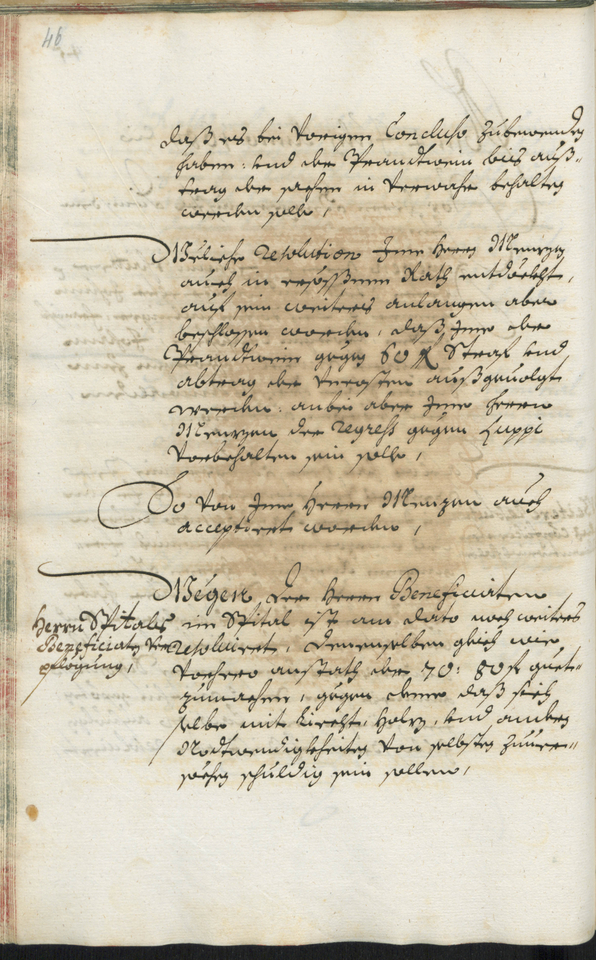 46
daß es bei vorigen Concluso zubewenden
haben: und der Prandtwein biß auß-
trag der sachen in Verwahr behalten
werden solle,
Welliche resolution Jme Herrn Menzen
auch in Rath entdeckht,
auf sein weiteres anlangen aber
beschlossen worden, daß Jme der
Prandtwein gegen 60 fl Straf und
abtrag der Uncosten außgevolgt
werden: anbei aber Jme Herrn
Menzen der regress gegen Luppi
vorbehalten sein solle,
So von Jme Herrn Menzen auch
acceptiert worden,
Wegen der Herrn Beneficiaten
im Spital ist am dato noch weiters
resolviert, denenselben gleich wie
vorhero anstath der 70: 80 fl guet-
zumachen, gegen deme daß sich
selbe mit Liecht, Holz, und andern
Nodtwendigkheiten von selbsten zuver-
sechen schuldig sein sollen,
Herrn Spitals
Beneficiaten Ver-
pflegung,